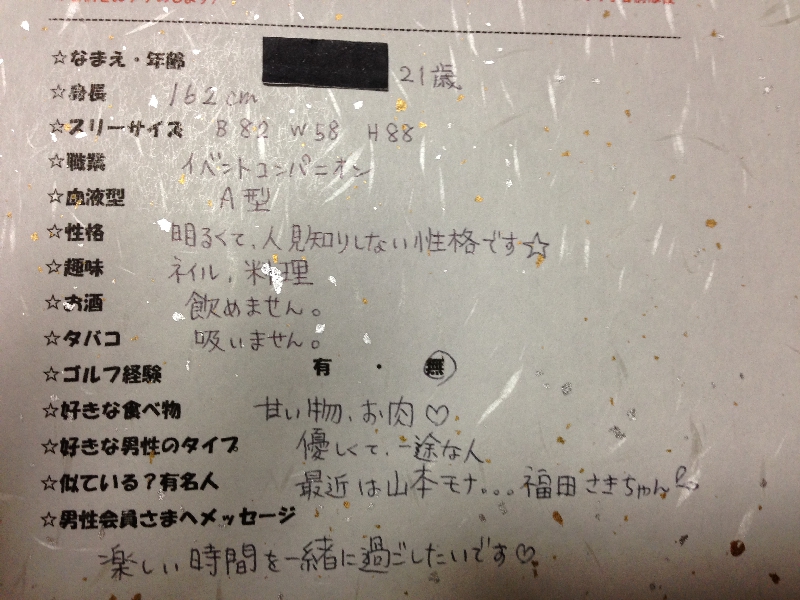 ☆なまえ・年齢 21歳
☆身長 162cm
☆スリーサイズ B82 W58 H88
☆職業 イベントコンパニオン
☆血液型 A型
☆性格 明るくて、人見知りしない性格です☆
☆趣味 ネイル、料理
☆お酒 飲めません。
☆タバコ 吸いません。
☆ゴルフ経験 有・無
☆好きな食べ物 甘い物、お肉♡
☆好きな男性のタイプ 優しくて、一途な人
☆似ている?有名人 最近は山本モナ。。。福田さきちゃん
☆男性会員さまへメッセージ
楽しい時間を一緒に過ごしたいです♡